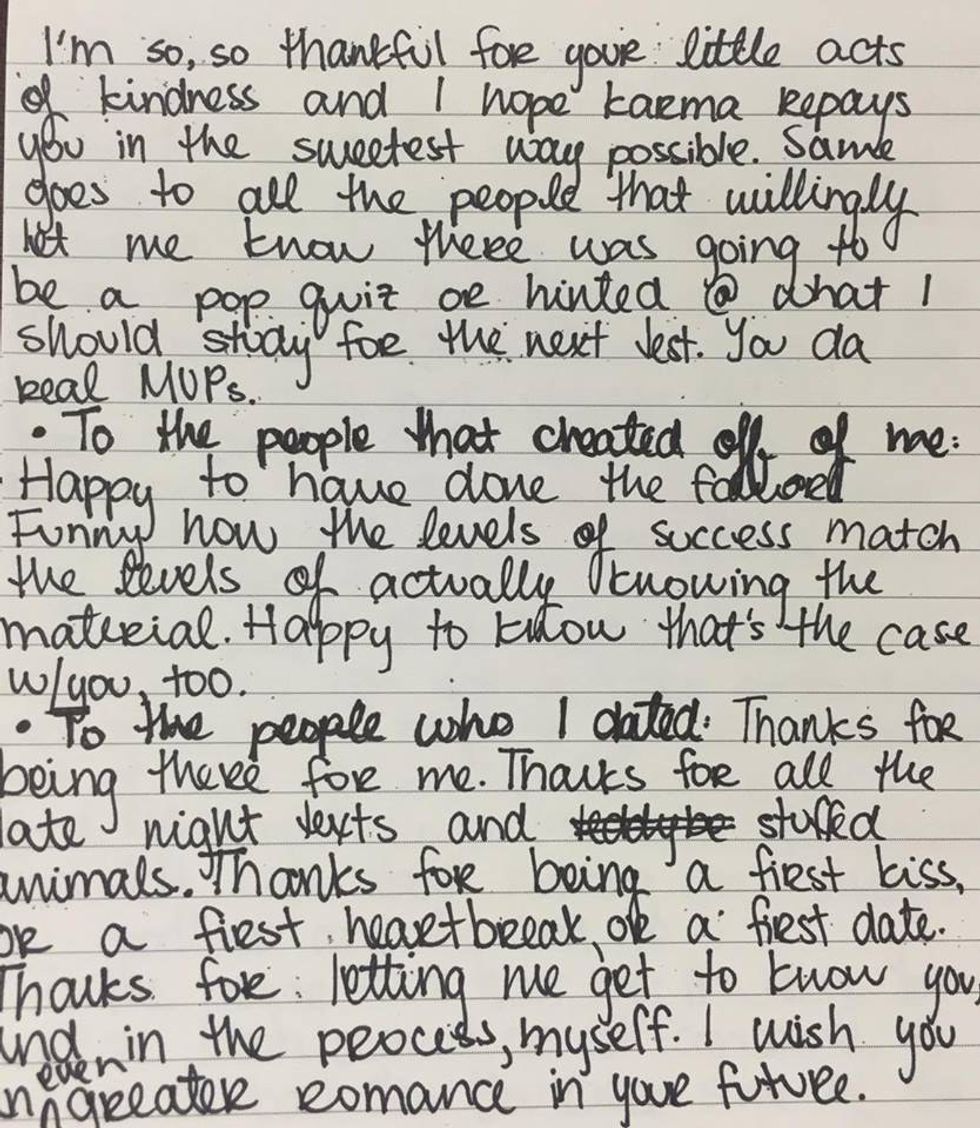 I'm so, so thankful for your little acts
of kindness and I hope karma repays
you in the sweetest way possible. Same
goes to all the people that willingly
let me know there was going to
be a pop quiz or hinted @ what I
should study for the next test. You da
real MVPs.
• To the people that cheated off of me:
Happy to have done the
Funny how the levels of success match
the levels of actually knowing the
material. Happy to know that's the case
w/you, too.
• To the people who I dated: Thanks for
being there for me. Thanks for all the
late night texts and teddy be stuffed
animals. Thanks for being a first kiss,
or a first heartbreak, or a first date.
Thanks for letting me get to know you,
and in the process, myself. I wish you
even greater romance in your future.